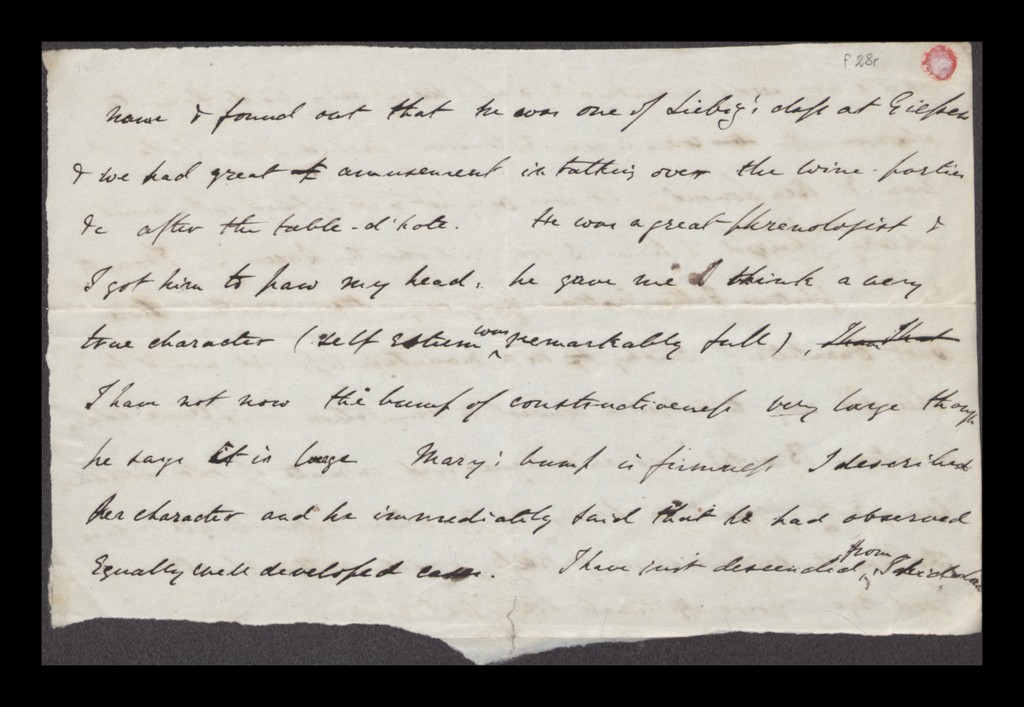 f. 28r
name & found out that he was one of Liebig's class at Giessen
& we had great amusement in talking over the wine-parties
&c after the table-d'hote. He was a great phrenologist &
I got him to paw my head, he gave me I think a very
true character (self Esteem was remarkably full),
I have not now the bump of constructiveness very large though
he says it is large Mary's bump is firmness I described
her character and he immediately said that he had observed
Equally well developed cases. I have just descended from